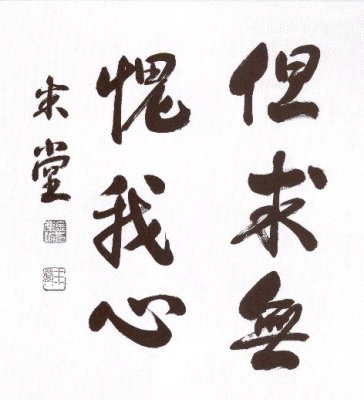 但求無
愧我心
米堂